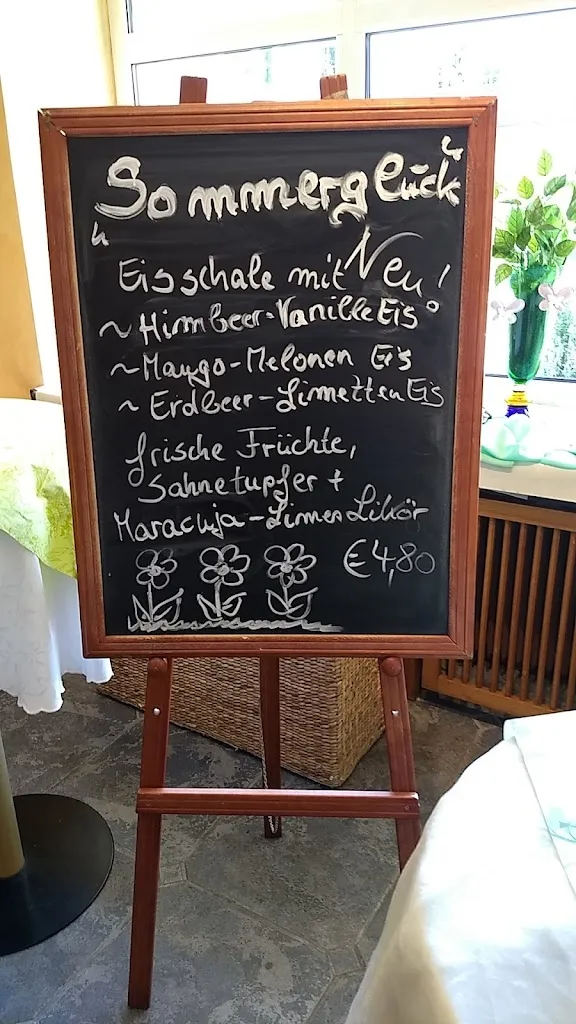 "Sommerglück"
Eisschale mit Neu!
~ Himbeer-Vanille Eis
~ Mango-Melonen Eis
~ Erdbeer-Limetten Eis
frische Früchte,
Sahnetupfer +
Maracuja-Limes Likör
€4,80